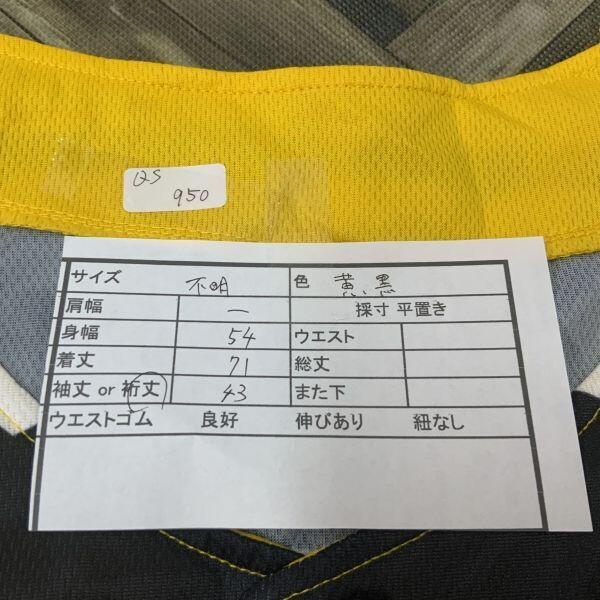 QS
950
サイズ 不明 色 黄、黒
肩幅 — 採寸 平置き
身幅 54 ウエスト
着丈 71 総丈
袖丈 or 裄丈 43 また下
ウエストゴム 良好 伸びあり 紐なし